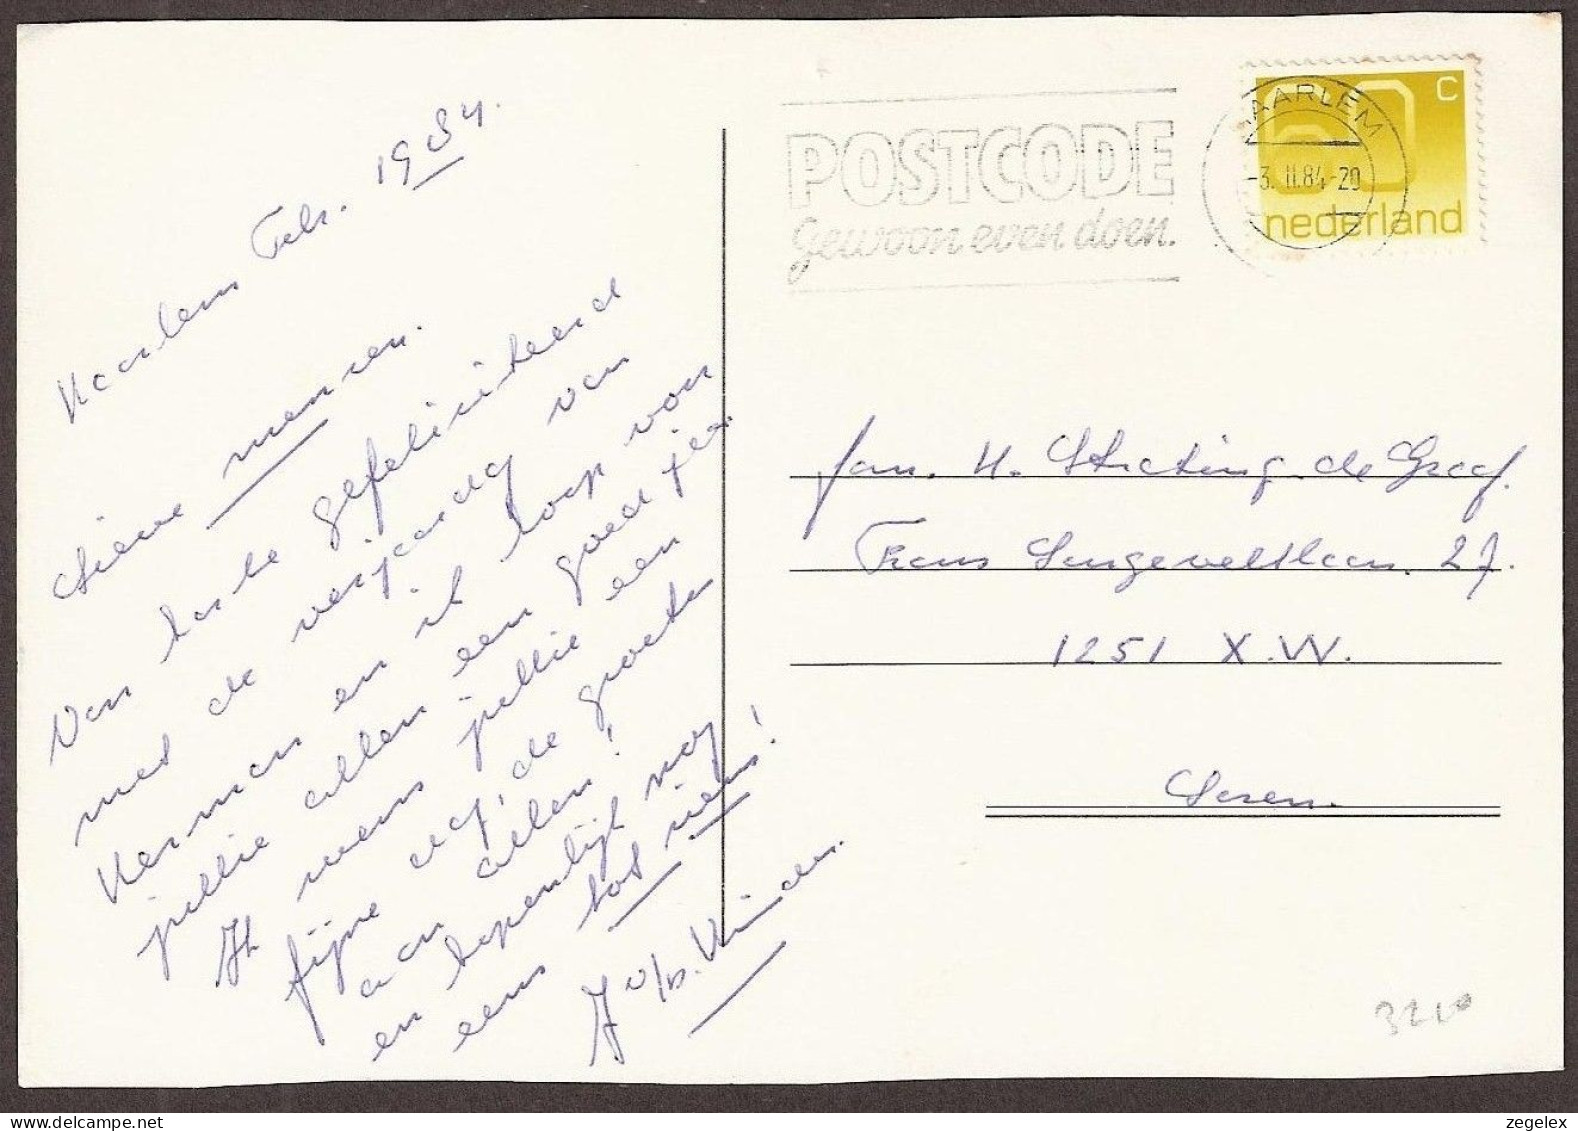 Haarlem Feb. 1984.
Lieve mensen.
Van harte gefeliciteerd
met de verjaardag van
Herman en ik hoop van
jullie allen een goed jaar
Ik wens jullie een
fijne dag, de groeten
aan allen!
en hopenlijk nog
eens tot ziens!
J v/d. Linden.
POSTCODE
gewoon even doen.
HAARLEM
-3. II.84-20
60 C
nederland
Fam. H. Strating. de Graaf.
Frans Langeveldlaan. 27.
1251 X.W.
Laren.
zegelex.com